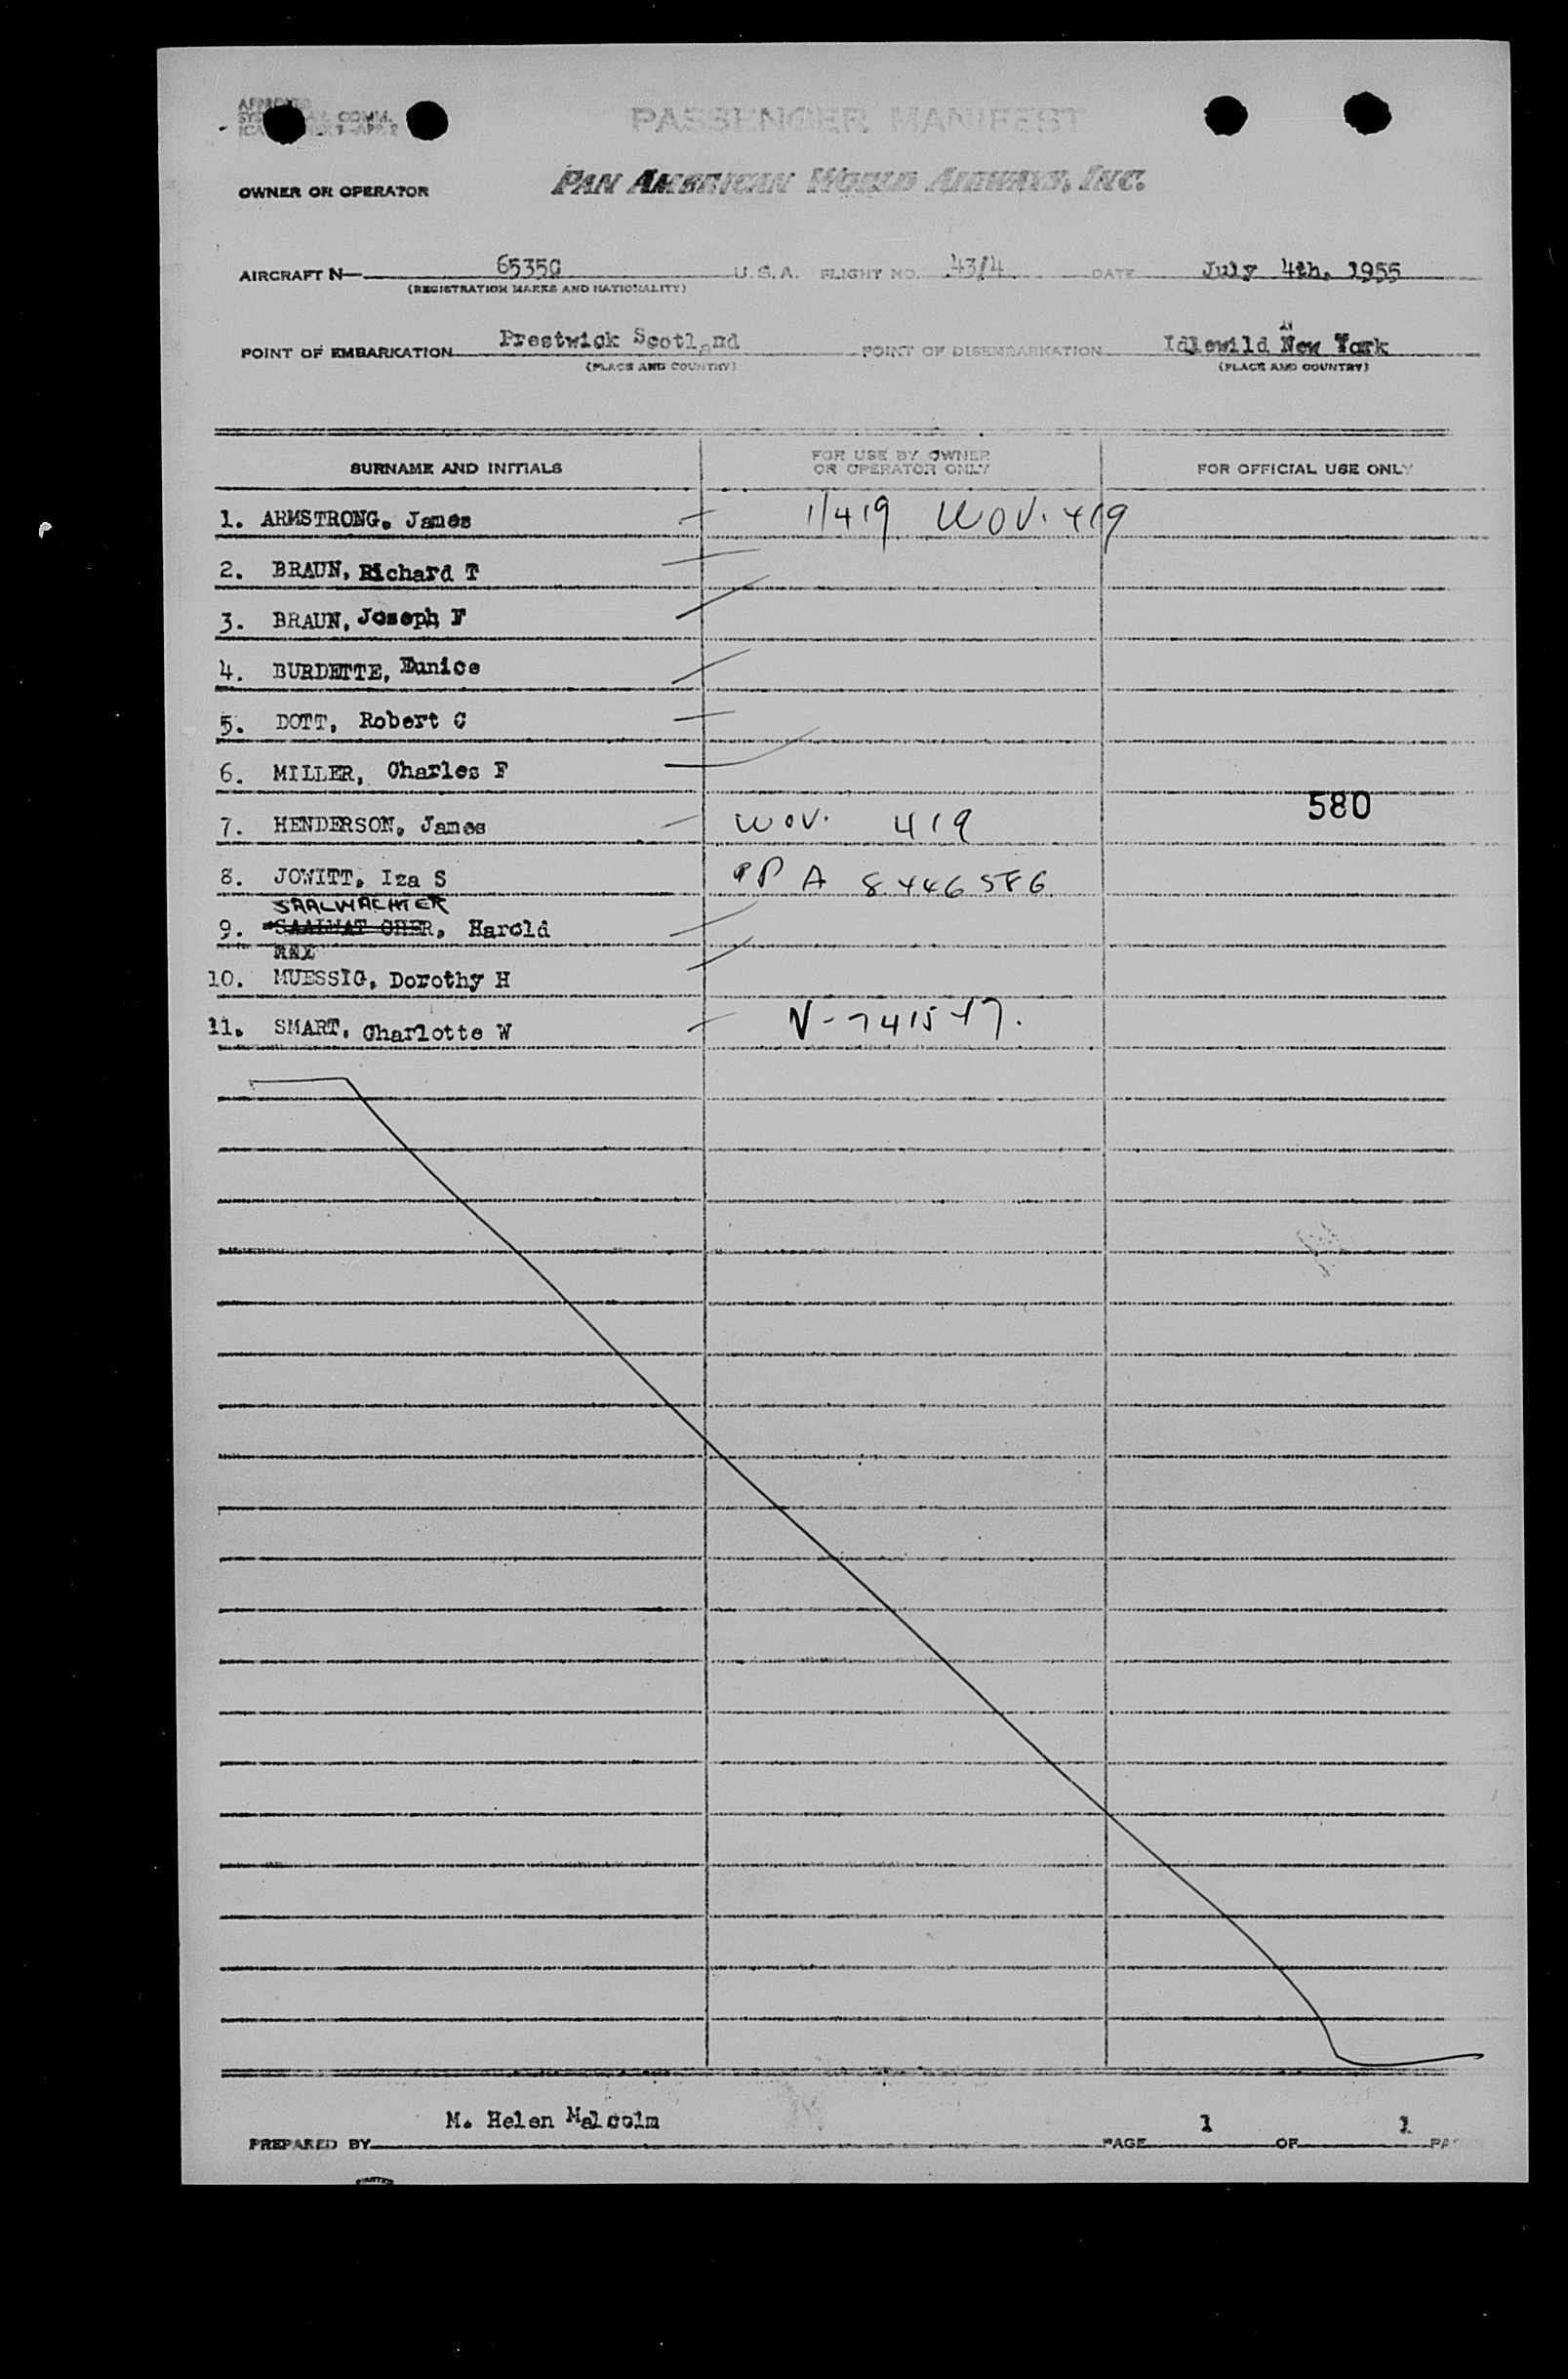 PASSENGER MANIFEST
OWNER OR OPERATOR PAN AMERICAN WORLD AIRWAYS, INC.
AIRCRAFT N— 6535C U.S.A. FLIGHT NO. 43/4 DATE July 4th, 1955
(REGISTRATION MARKS AND NATIONALITY)
POINT OF EMBARKATION Prestwick Scotland POINT OF DISEMBARKATION Idlewild New York
(PLACE AND COUNTRY) (PLACE AND COUNTRY)
SURNAME AND INITIALS FOR USE BY OWNER OR OPERATOR ONLY FOR OFFICIAL USE ONLY
1. ARMSTRONG, James 1/419 WOV. 419
2. BRAUN, Richard T
3. BRAUN, Joseph F
4. BURDETTE, Eunice
5. DOTT, Robert C
6. MILLER, Charles F
580
7. HENDERSON, James WOV. 419
8. JOWITT, Iza S PP A
SAALWACHTER
9. SAALWAT CHER, Harold
10. MUESSIG, Dorothy H
11. SMART, Charlotte W
M. Helen Malcolm
PREPARED BY PAGE 1 OF 1